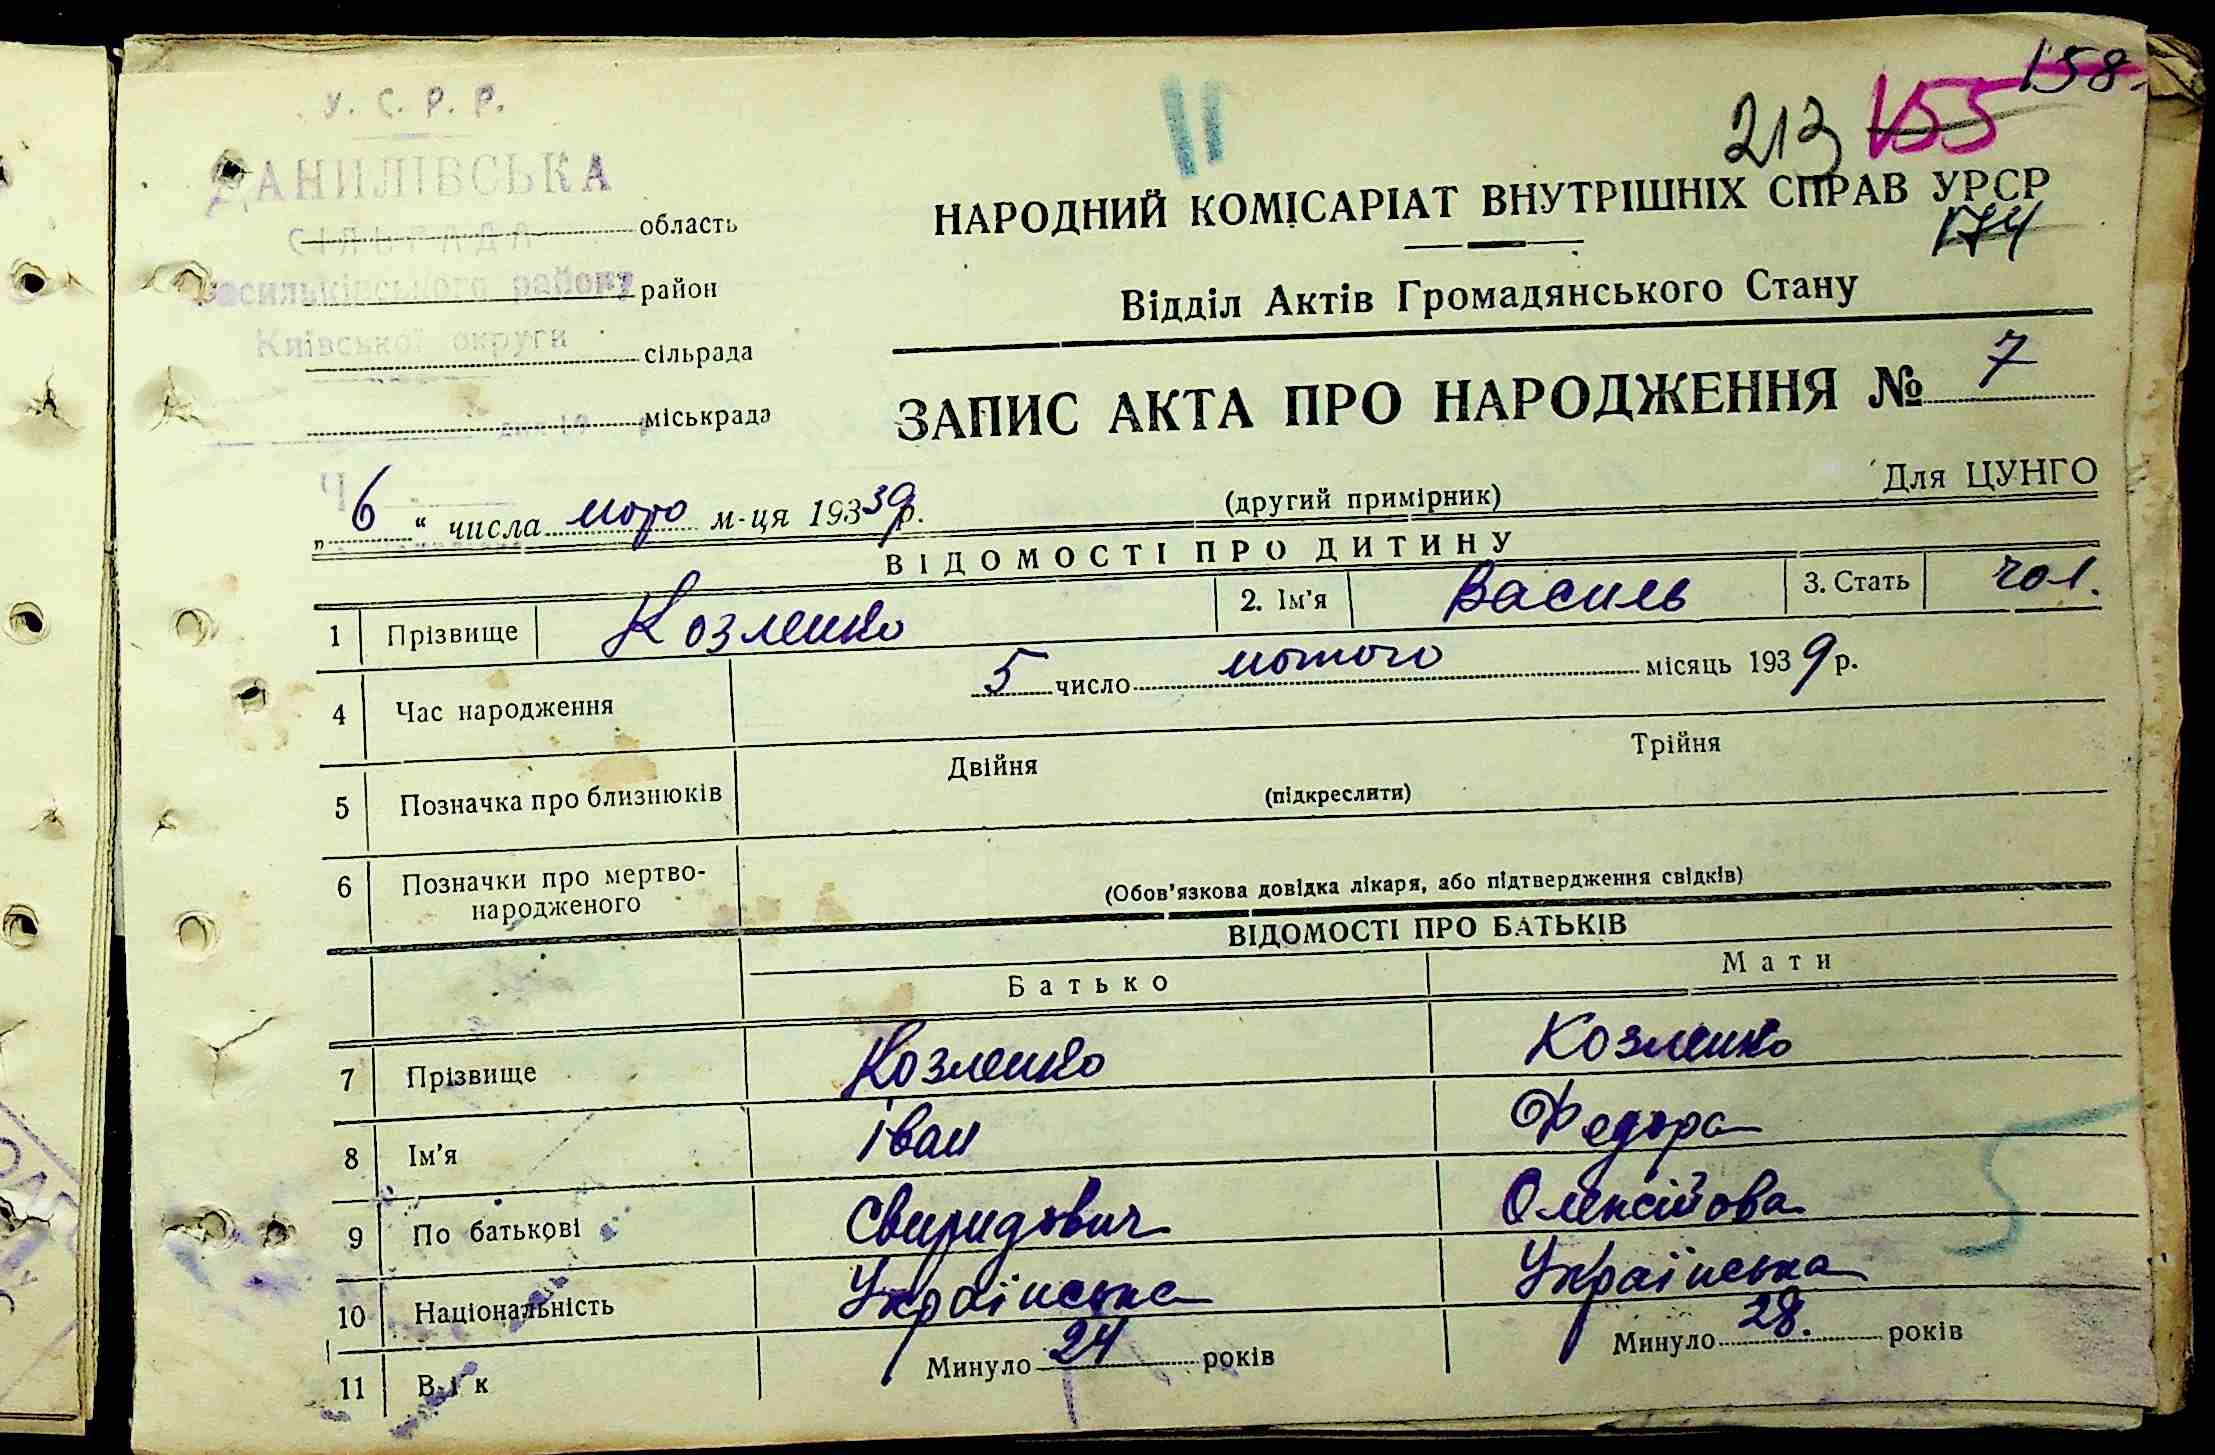 158.
213 155
174
У. С. Р. Р.
ДАНИЛІВСЬКА
СІЛЬРАДА область
Васильківського району район
Київської округи сільрада
міськрада
НАРОДНИЙ КОМІСАРІАТ ВНУТРІШНІХ СПРАВ УРСР
Відділ Актів Громадянського Стану
ЗАПИС АКТА ПРО НАРОДЖЕННЯ № 7
„6“ числа м-ця 193 39 р.
(другий примірник)
Для ЦУНГО
ВІДОМОСТІ ПРО ДИТИНУ
1 Прізвище Козленко 2. Ім'я Василь 3. Стать чол.
4 Час народження 5 число лютого місяць 1939 р.
5 Позначка про близнюків Двійня Трійня
(підкреслити)
6 Позначки про мертво-
народженого
(Обов'язкова довідка лікаря, або підтвердження свідків)
ВІДОМОСТІ ПРО БАТЬКІВ
Батько Мати
7 Прізвище Козленко Козленко
8 Ім'я Іван Федора
9 По батькові Свиридович Олексійова
10 Національність Українська Українська
11 Вік Минуло 24 років Минуло 28. років